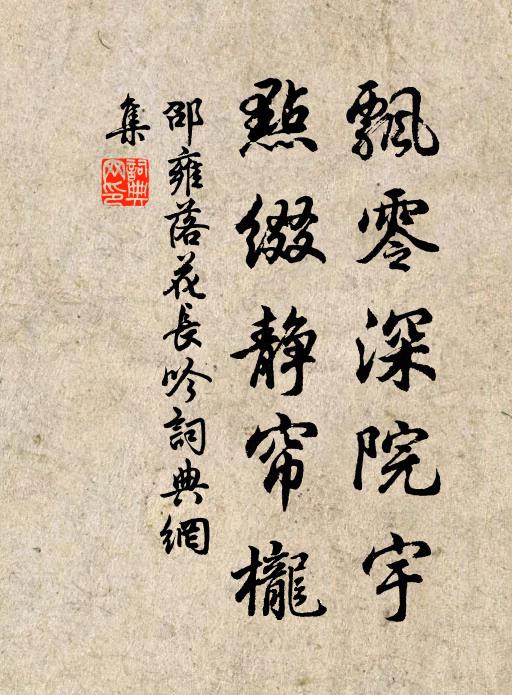 飄零深院宇
點綴静帘櫳
邵雍落花長吟詞典網
集
詞典
网印